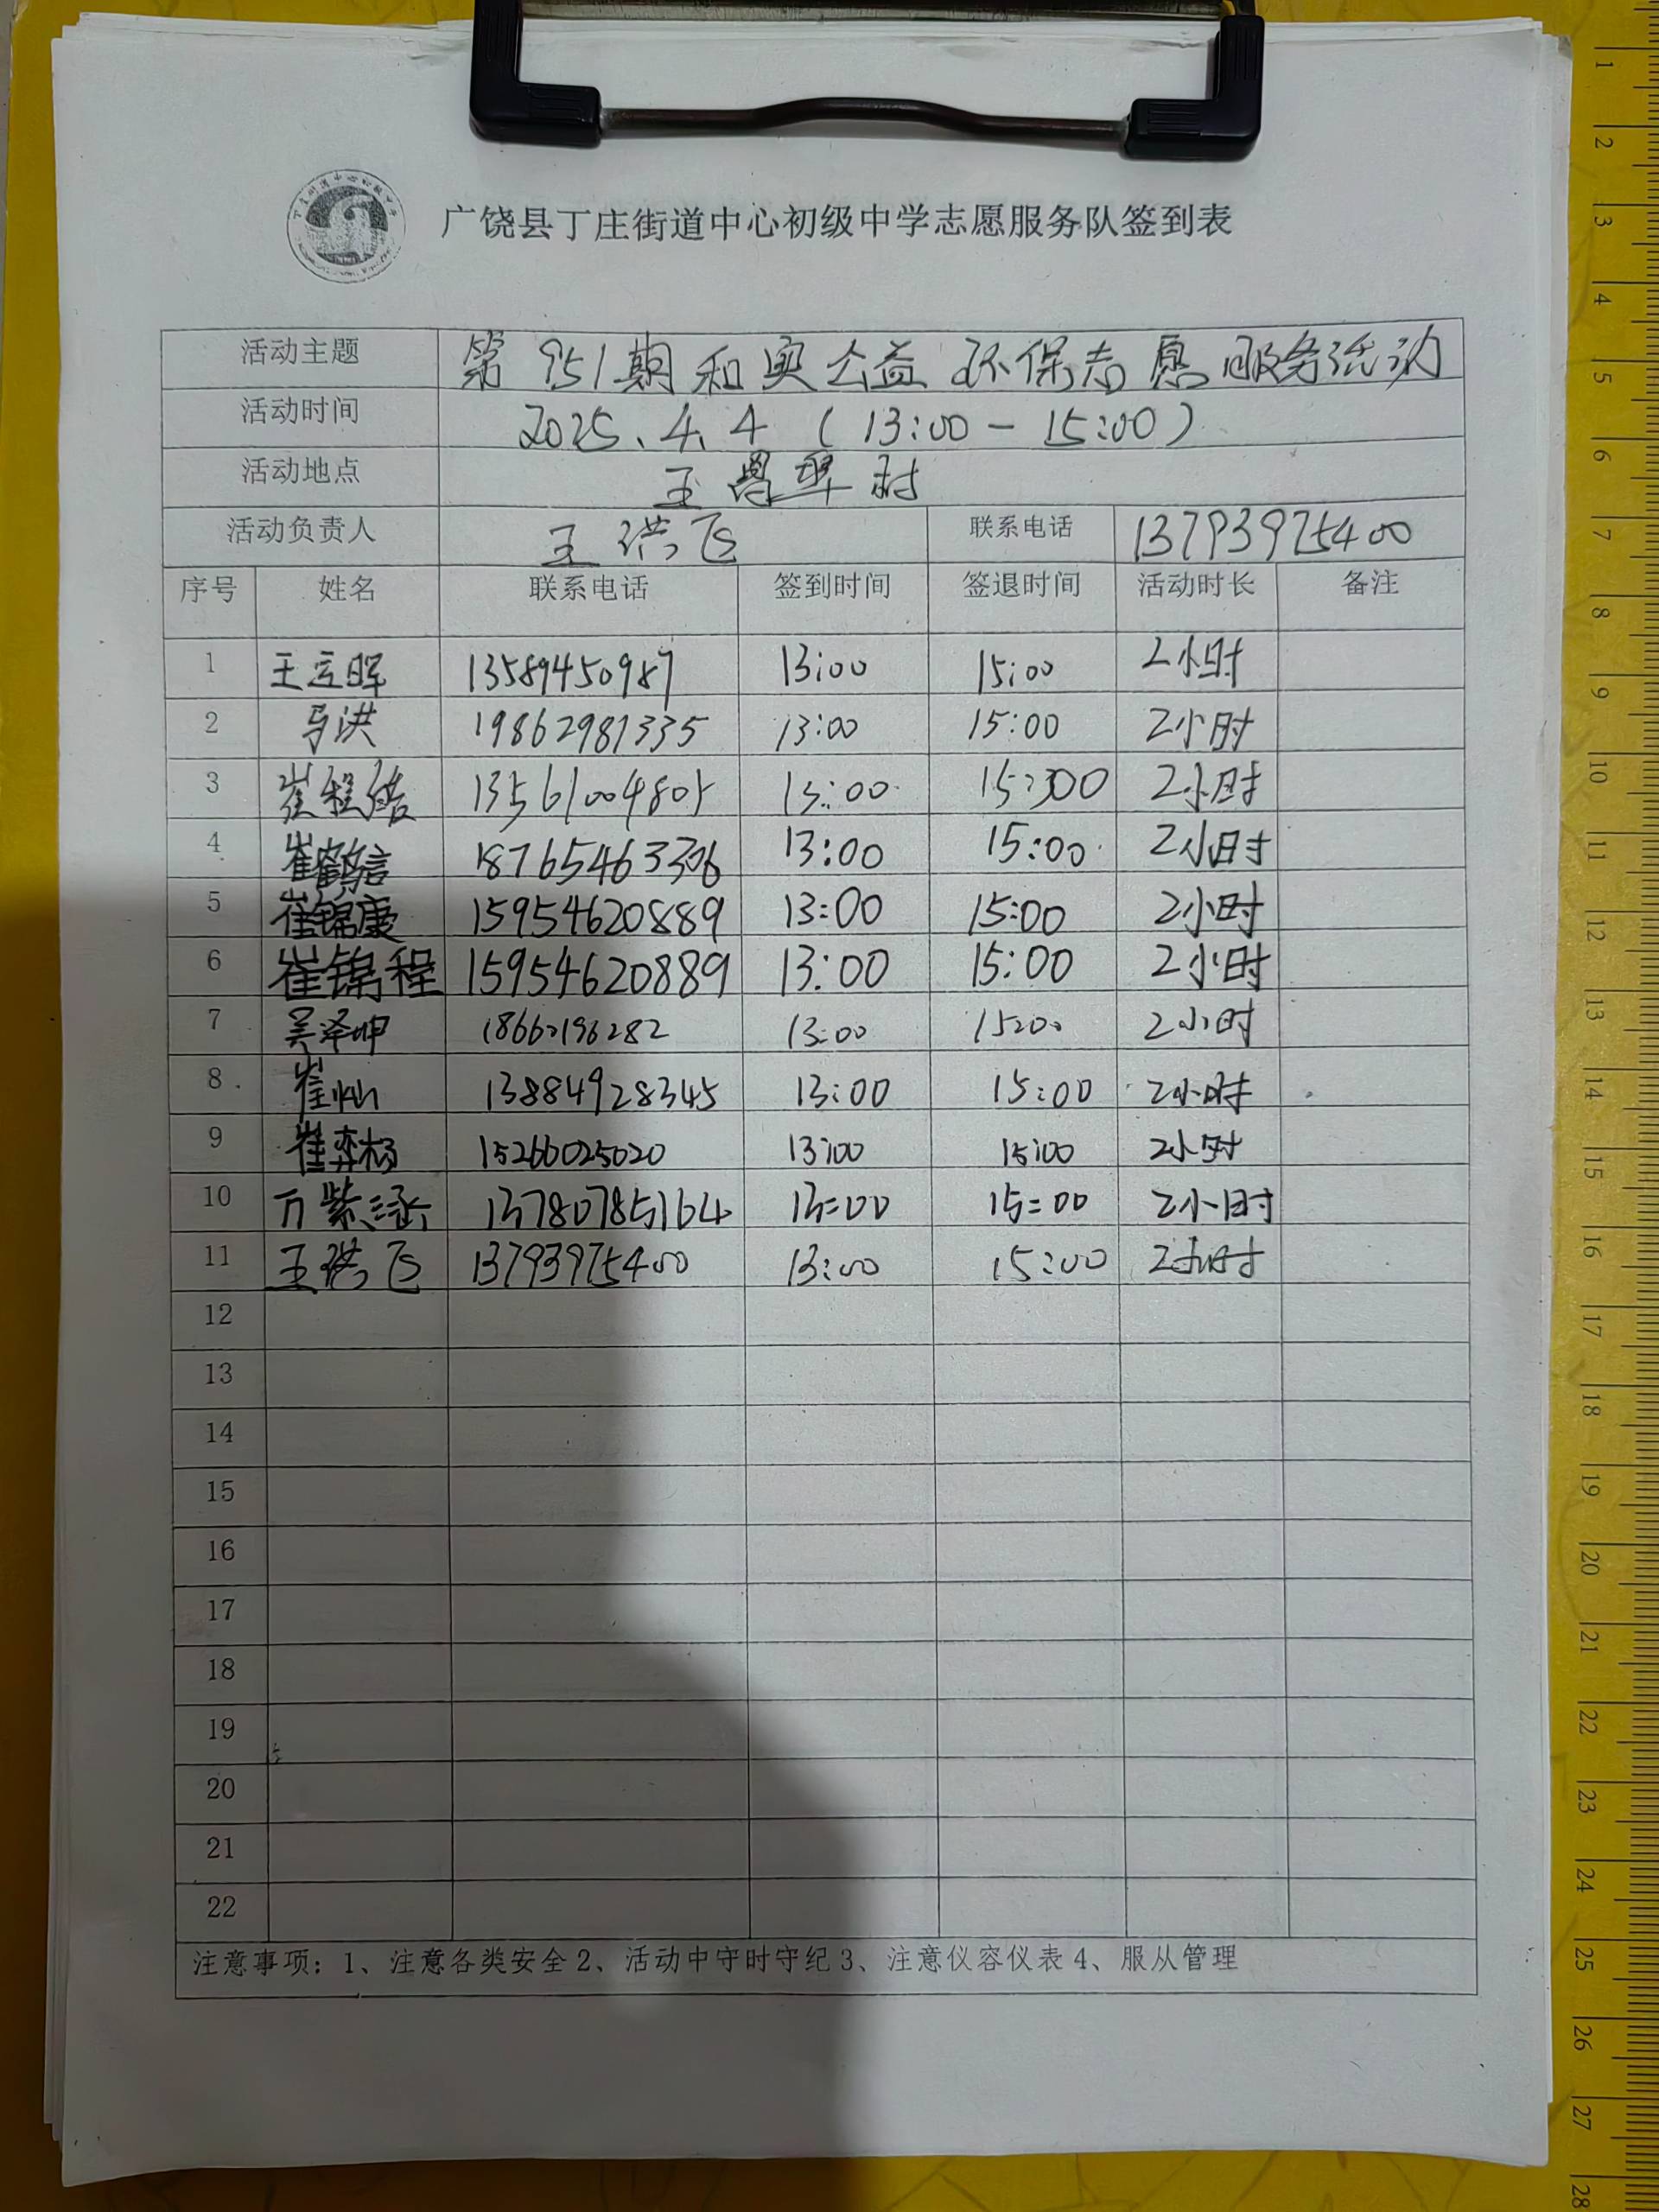 广饶县丁庄街道中心初级中学志愿服务队签到表
活动主题 第951期和实公益环保志愿服务活动
活动时间 2025.4.4 (13:00-15:00)
活动地点 王署埠村
活动负责人 王洪飞 联系电话 13793975400
序号 姓名 联系电话 签到时间 签退时间 活动时长 备注
1 王立晖 13589450987 13:00 15:00 2小时
2 马洪 19862981335 13:00 15:00 2小时
3 崔程皓 13561004805 13:00 15:00 2小时
4 崔鹤言 18765463306 13:00 15:00 2小时
5 崔锦康 15954620889 13:00 15:00 2小时
6 崔锦程 15954620889 13:00 15:00 2小时
7 吴泽坤 18660196282 13:00 15:00 2小时
8 崔灿 13884928345 13:00 15:00 2小时
9 崔弈杨 15266025020 13:00 15:00 2小时
10 万紫涵 13780785164 13:00 15:00 2小时
11 王洪飞 13793975400 13:00 15:00 2小时
12
13
14
15
16
17
18
19
20
21
22
注意事项：1、注意各类安全2、活动中守时守纪3、注意仪容仪表4、服从管理
1
2
3
4
5
6
7
8
9
10
11
12
13
14
15
16
17
18
19
20
21
22
23
24
25
26
27
28